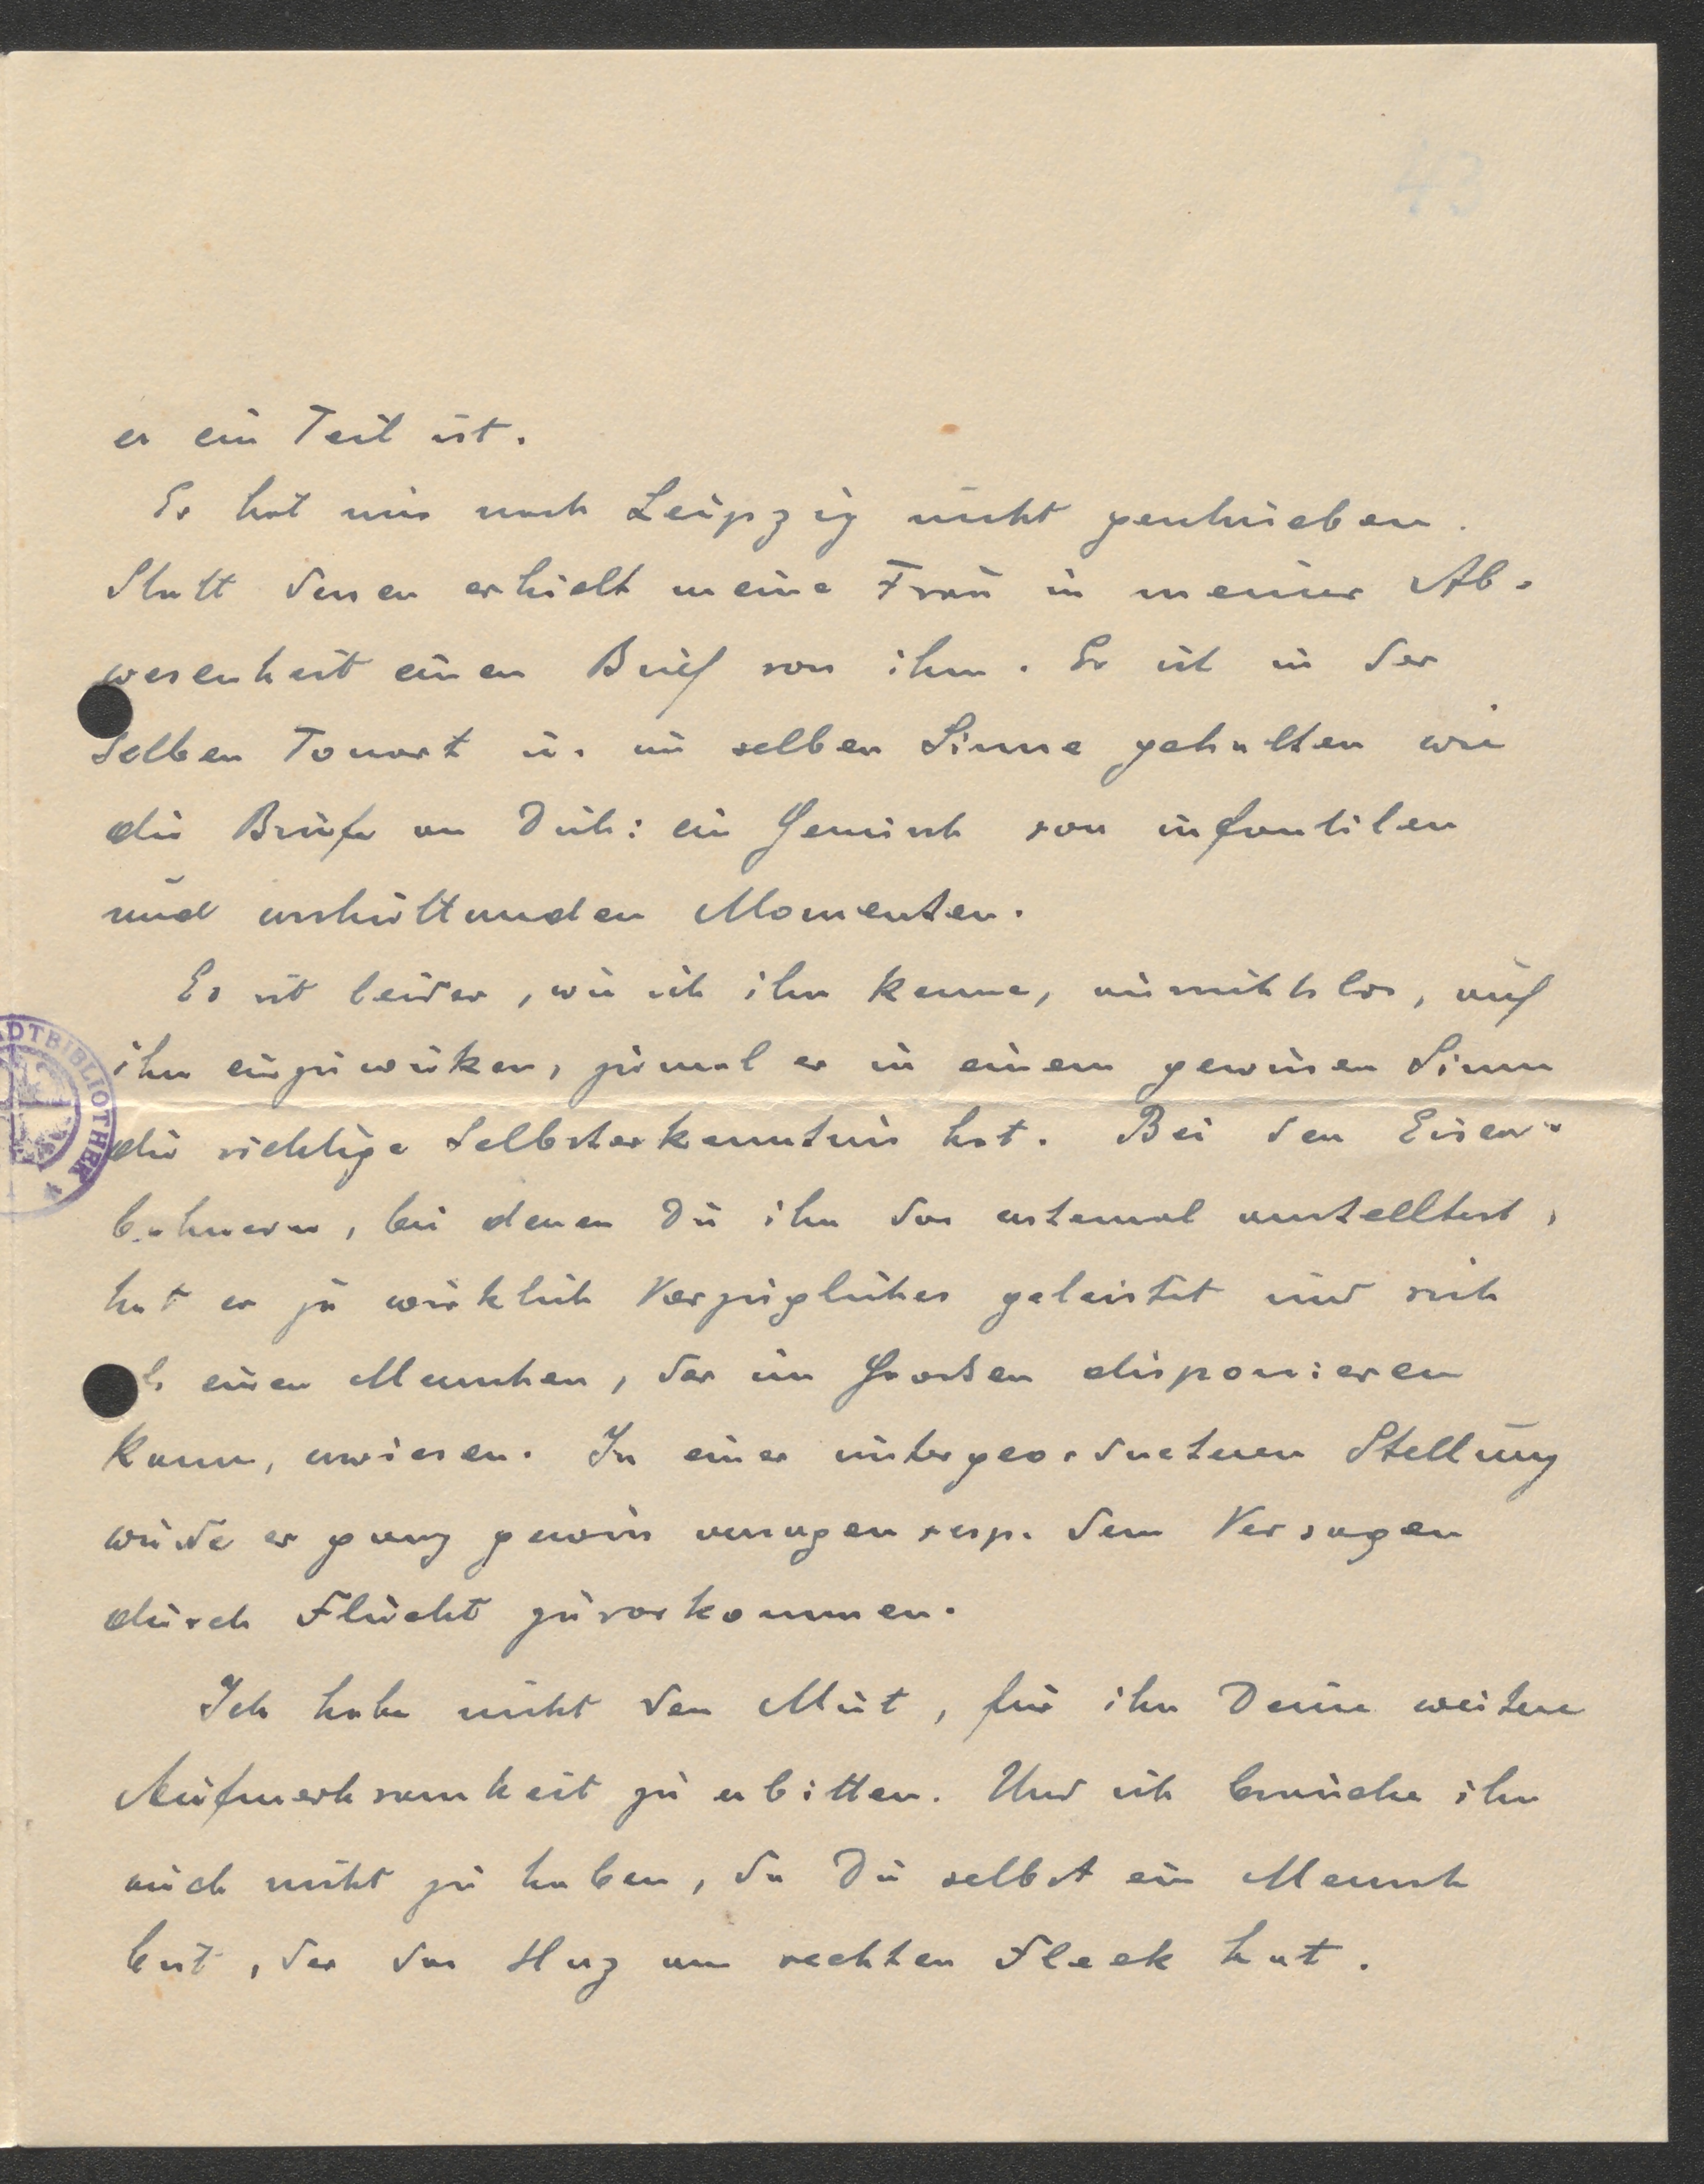 43
er ein Teil ist.
Er hat mir nach Leipzig nicht geschrieben.
Statt dessen erhielt meine Frau in meiner Ab-
wesenheit einen Brief von ihm. Er ist in der
selben Tonart u. im selben Sinne gehalten wie
die Briefe an Dich: ein Gemisch von infantilen
und erschütternden Momenten.
Es ist leider, wie ich ihn kenne, aussichtslos, auf
ihn einzuwirken, zumal er in einem gewissen Sinn
die richtige Selbsterkenntnis hat. Bei den Eisen-
bahnern, bei denen Du ihn das erstemal anstelltest,
hat er ja wirklich Vorzügliches geleistet und sich
als einen Menschen, der im Großen disponieren
kann, erwiesen. In einer untergeordneteren Stellung
würde er ganz gewiss versagen resp. dem Versagen
durch Flucht zuvorkommen.
Ich habe nicht den Mut, für ihn Deine weitere
Aufmerksamkeit zu erbitten. Und ich brauche ihn
auch nicht zu haben, da Du selbst ein Mensch
bist, der das Herz am rechten Fleck hat.
ADTBIBLIOTHEK